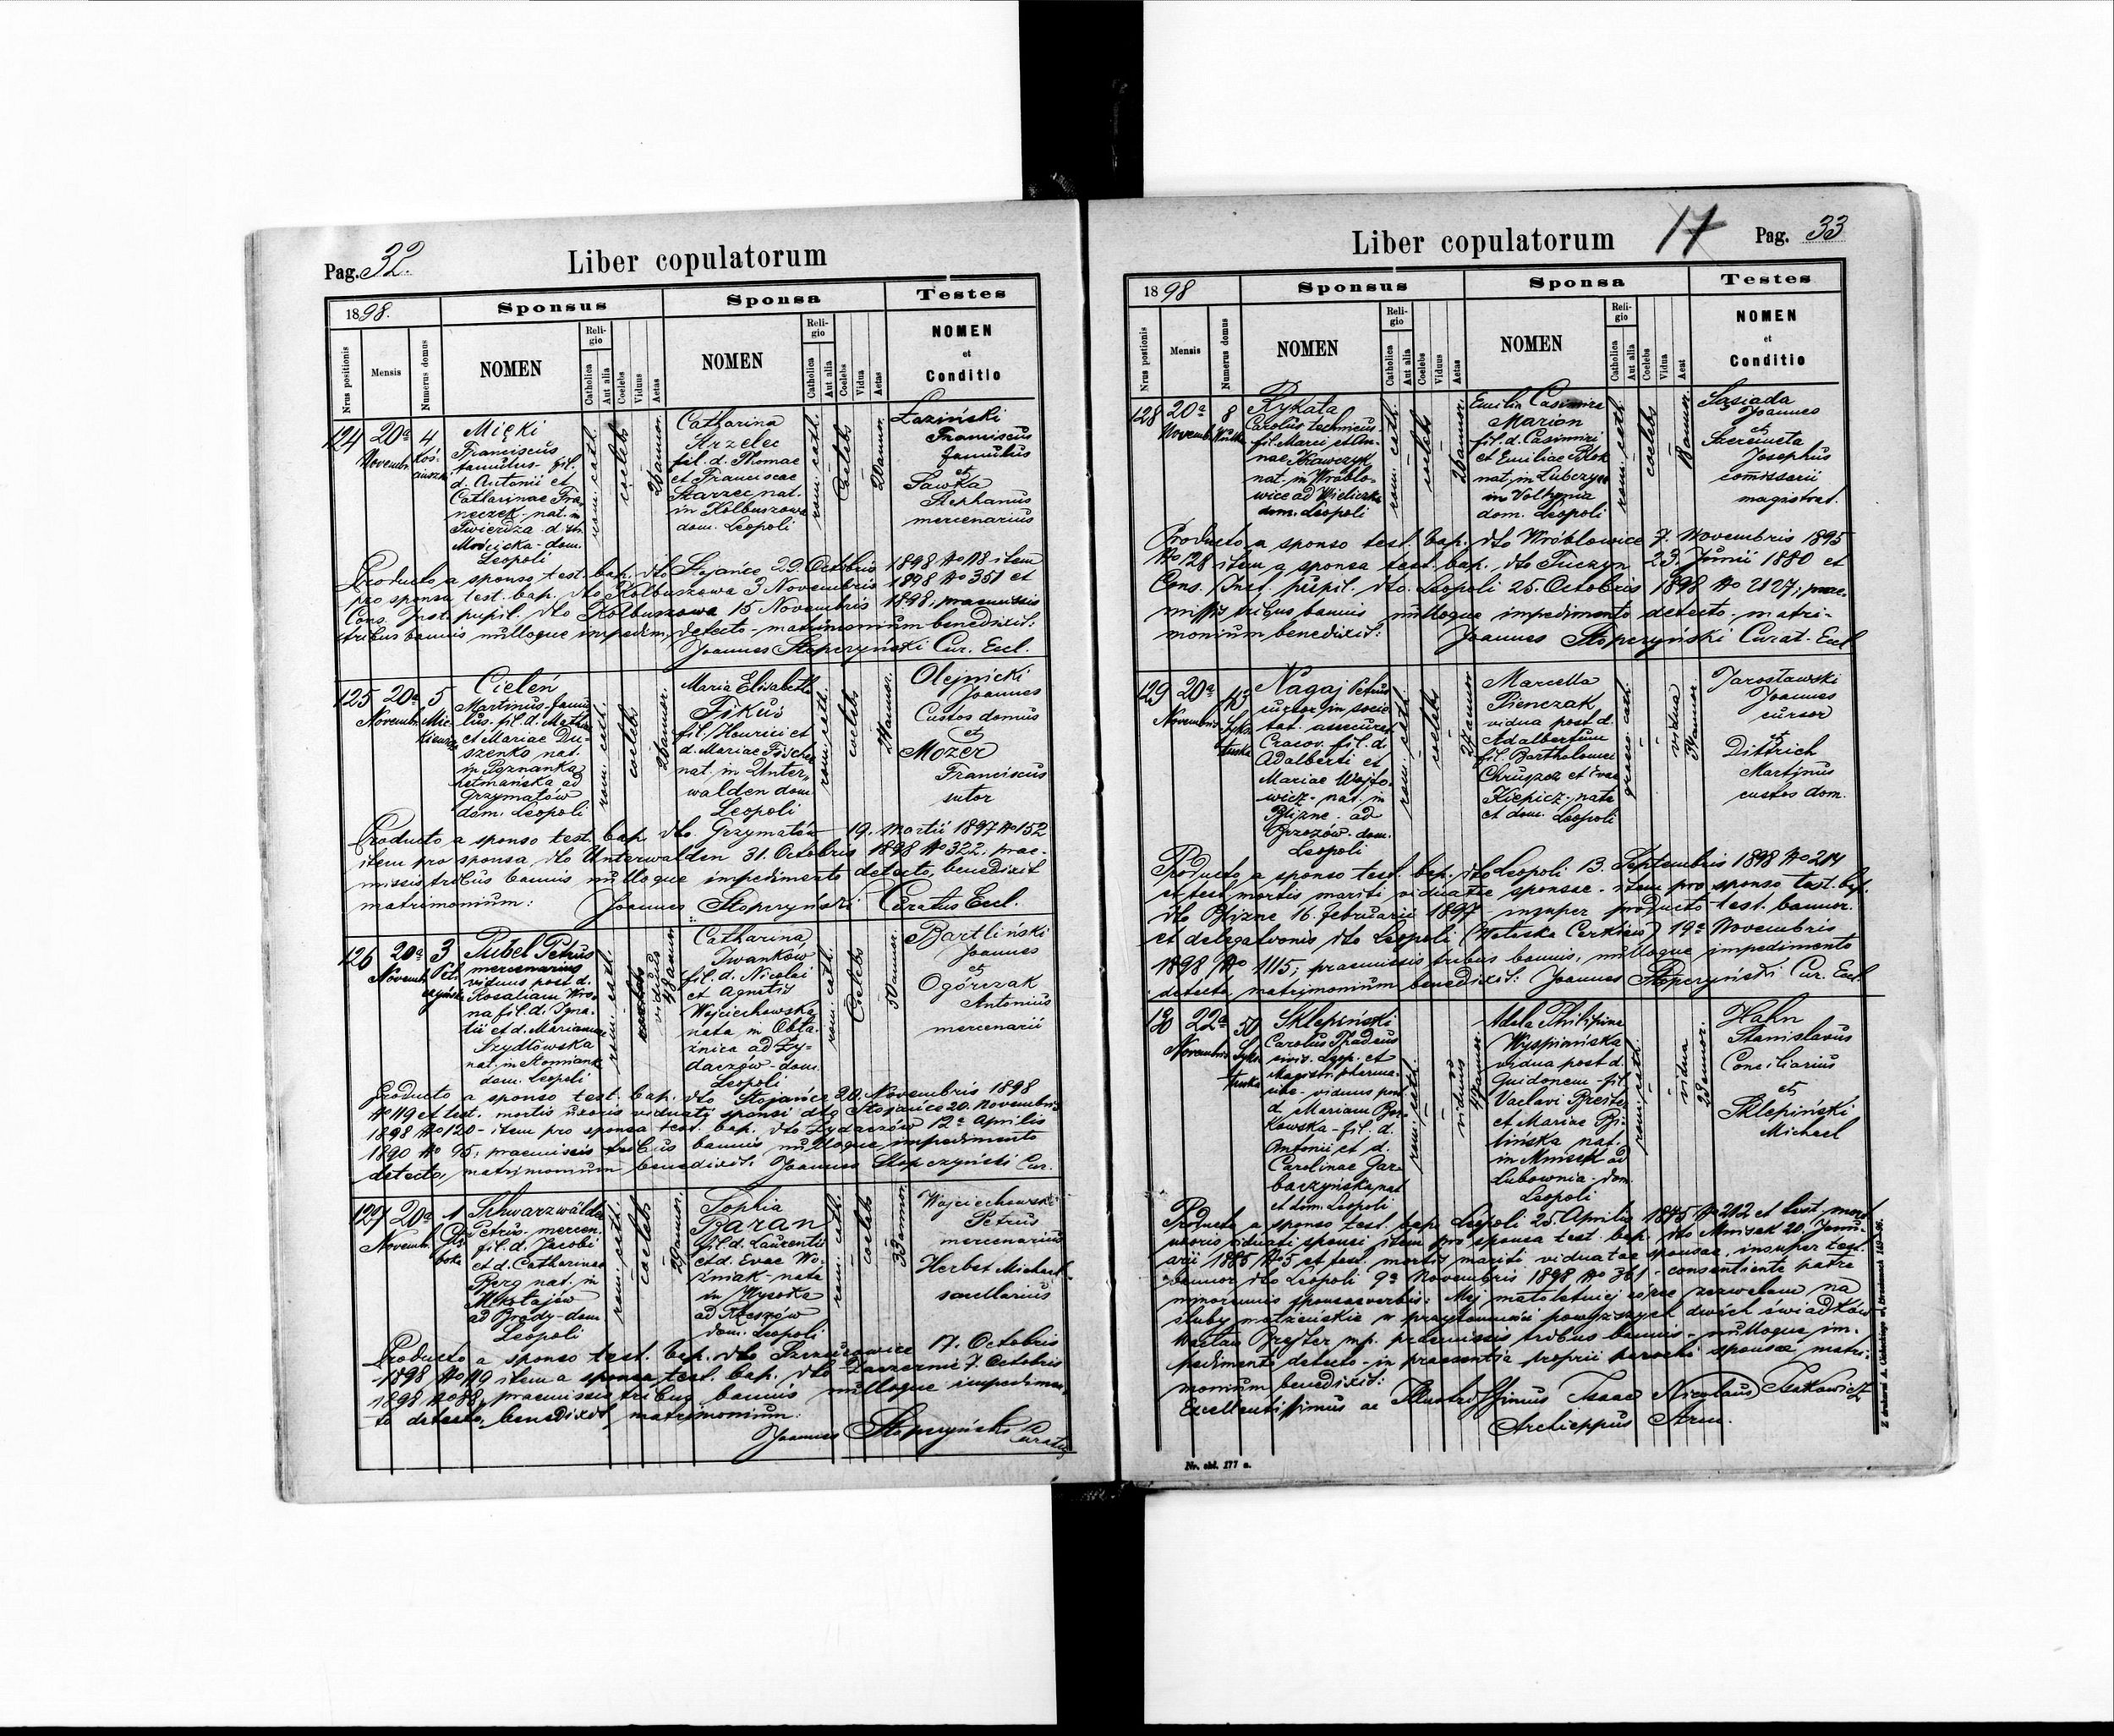 Pag. 32.
Liber copulatorum
1898.
Sponsus
Sponsa
Testes
Nrus positionis
Mensis
Numerus domus
NOMEN
Religio
Catholica
Aut alia
Coelebs
Viduus
Aetas
NOMEN
Religio
Catholica
Aut alia
Coelebs
Vidua
Aetas
NOMEN
et
Conditio
124
20a
Novembr.
4
Koś-
ciuszk
Mięki
Franciscus
famulus - fil.
d. Antonii et
Catharinae Fra
neczek - nat. in
Twierdza d. str.
Mościska - dom.
Leopoli
rom. cath.
coelebs
26 annor.
Catharina
Strzelec
fil. d. Thomae
et Franciscae
Starzec nat.
in Kolbuszowa
dom. Leopoli
rom. cath.
Coelebs
20 annor.
Łaziński
Franciscus
famulus
et
Sawka
Stephanus
mercenarius
Producto a sponso test. bap. dto Stojańce 29. Octobris 1898 No 118 item
pro sponsa test. bap. dto Kolbuszowa 3 Novembris 1898 No 351 et
Cons. Inst. pupil. dto Kolbuszowa 15 Novembris 1898; praemissis
tribus bannis nulloque impedim. detecto - matrimonium benedixit:
Joannes Stopczyński Cur. Eccl.
125
20a
Novembr.
5
Mic-
kiewicz
Cieleń
Martinus famu
lus - fil. d. Math.
et Mariae Du-
szenko nat.
in Poznanka
hetmańska ad
Grzymałów
dom. Leopoli
rom. cath.
coelebs
26 annor.
Maria Elisabeth
Fikus
fil. Henrici et
d. Mariae Fischer
nat. in Unter-
walden dom.
Leopoli
rom. cath.
coelebs
24 annor.
Olejnicki
Joannes
Custos domus
et
Mozer
Franciscus
sutor
Producto a sponso test. bap. dto. Grzymałów 19. Martii 1897 No 152
item pro sponsa dto Unterwalden 31. Octobris 1898 No 322; prae-
missis tribus bannis nulloque impedimento detecto, benedixit
matrimonium: Joannes Stopczyński Curatus Eccl.
126
20a
Novemb.
3
Peł-
czyńska
Pubel Petrus
mercenarius
viduus post d.
Rosaliam Wro-
na fil. d. Igna-
tii et d. Mariannae
Szydłowska
nat. in Słomianka
dom. Leopoli
rom. cath.
coelebs
viduus
48 annor.
Catharina
Iwanków
fil. d. Nicolai
et Agnetis
Wojciechowska
nata in Obła-
źnica ad Ży-
daczów - dom.
Leopoli
rom. cath.
Coelebs
30 annor.
Bartliński
Joannes
et
Ogórczak
Antonius
mercenarii
Producto a sponso test. bap. dto Stojańce 20. Novembris 1898
No 119 et test. mortis uxoris viduati sponsi dto Stojańce 20. Novembris
1898 No 120 - item pro sponsa test. bap. dto Żydaczów 12a Aprilis
1890 No 95; praemissis tribus bannis nulloque impedimento
detecto, matrimonium benedixit: Joannes Stopczyński Cur.
127
20a
Novembr.
1
Schwarzwälder
Petrus - mercen.
fil. d. Jacobi
et d. Catharinae
Berg nat. in
Mikołajów
ad Brody - dom.
Leopoli
rom. cath.
coelebs
29 annor.
Sophia
Baran
fil. d. Laurentii
et d. Evae Wo-
źniak - nata
in Wysoka
ad Rzeszów
dom. Leopoli
rom. cath.
coelebs
33 annor.
Wojciechowski
Petrus
mercenarius
Herbst Michael
sacellarius
Producto a sponso test. bap. dto Szczurowice 17. Octobris
1898 No 119 item a sponsa test. bap. dto Zaczernie 7. Octobris
1898 No 88; praemissis tribus bannis nulloque impedimen
to detecto, benedixit matrimonium:
Joannes Stopczyński Curatus
Liber copulatorum
17
Pag. 33
1898
Sponsus
Sponsa
Testes
Nrus postionis
Mensis
Numerus domus
NOMEN
Religio
Catholica
Aut alia
Coelebs
Viduus
Aetas
NOMEN
Religio
Catholica
Aut alia
Coelebs
Vidua
Aeat
NOMEN
et
Conditio
128
20a
Novemb.
8
Rykata
Carolus technicus
fil. Marci et An-
nae Krawczyk
nat. in Wróblo-
wice ad Wieliczka
dom. Leopoli
rom. cath.
coelebs
26 annor.
Emilia Casimira
Marion
fil. d. Casimiri
et Emiliae Blok
nat. in Łubczyn
in Volhynia
dom. Leopoli
rom. cath.
coelebs
18 annor.
Sąsiada
Joannes
et
Szeremeta
Josephus
comissarii
magistrat.
Producto a sponso test. bap. dto Wróblowice 7. Novembris 1895
No 128 item a sponsa test. bap. dto Tuczyn 23. Junii 1880 et
Cons. Inst. pupil. dto. Leopoli 25. Octobris 1898 No 2127; prae-
missis tribus bannis nulloque impedimento detecto - matri-
monium benedixit: Joannes Stopczyński Curat. Eccl
129
20a
Novembris
43
Nagaj Petrus
cursor in socie
tat. assecurat.
Cracov. fil. d.
Adalberti et
Mariae Wojto-
wicz - nat. in
Blizne ad
Brzozów dom.
Leopoli
rom. cath.
coelebs
27 annor.
Marcella
Pienczak
vidua post d.
Adalbertum
fil. Bartholomei
Chruszcz et Evae
Kiepicz - nata
et dom. Leopoli
graeco cath.
vidua
34 annor.
Jarosławski
Joannes
cursor
et
Dittrich
Martinus
custos dom.
Producto a sponso test. bap. dto Leopoli 13. Septembris 1898 No 214
et test. mortis mariti viduatae sponsae - item pro sponso test. bap.
dto Blizne 16. Februarii 1897 - insuper producto test. bannor.
et delegationis dto Leopoli (Wołoska Cerkiew) 19a Novembris
1898 No 1115; praemissis tribus bannis, nulloque impedimento
detecto, matrimonium benedixit: Joannes Stopczyński Cur. Eccl.
130
22a
Novembris
50
Sklepiński
Carolus Thadeus
civis Leop. et
Magistr. pharma-
ciae - viduus post
d. Mariam Bor-
kowska - fil. d.
Antonii et d.
Carolinae Gar-
baczyńska nat
et dom. Leopoli
rom. cath.
viduus
49 annor.
Adela Philipina
Wyspiańska
vidua post d.
Guidonem - fil.
Vaclavi Brejter
et Mariae Bi-
lińska nat.
in Mnisek ad
Lubownia - dom.
Leopoli
rom. cath.
vidua
28 annor.
Hahn
Stanislavus
Conciliarius
et
Sklepiński
Michael
Producto a sponso test. bap. Leopoli 25. Aprilis 1875 No 212 et test. mort.
uxoris viduati sponsi item pro sponsa test. bap. dto Mnisek 20. Janu-
arii 1885 No 5 et test. mortis mariti viduatae sponsae, insuper test.
bannor. dto Leopoli 9a Novembris 1898 No 361 - consentiente patre
minorennis sponsae verbis: Mej małoletniej córce zezwalam na
śluby małżeńskie w przytomności powyższych dwóch świadków
Wacław Brejter mp. praemissis tribus bannis - nulloque im-
pedimento detecto - in praesentia proprii parochi sponsae matri-
monium benedixit:
Excellentissimus ac Illustrissimus Isaac Nicolaus Isakowicz
Archieppus Arm.
Nr. okł. 177 a.